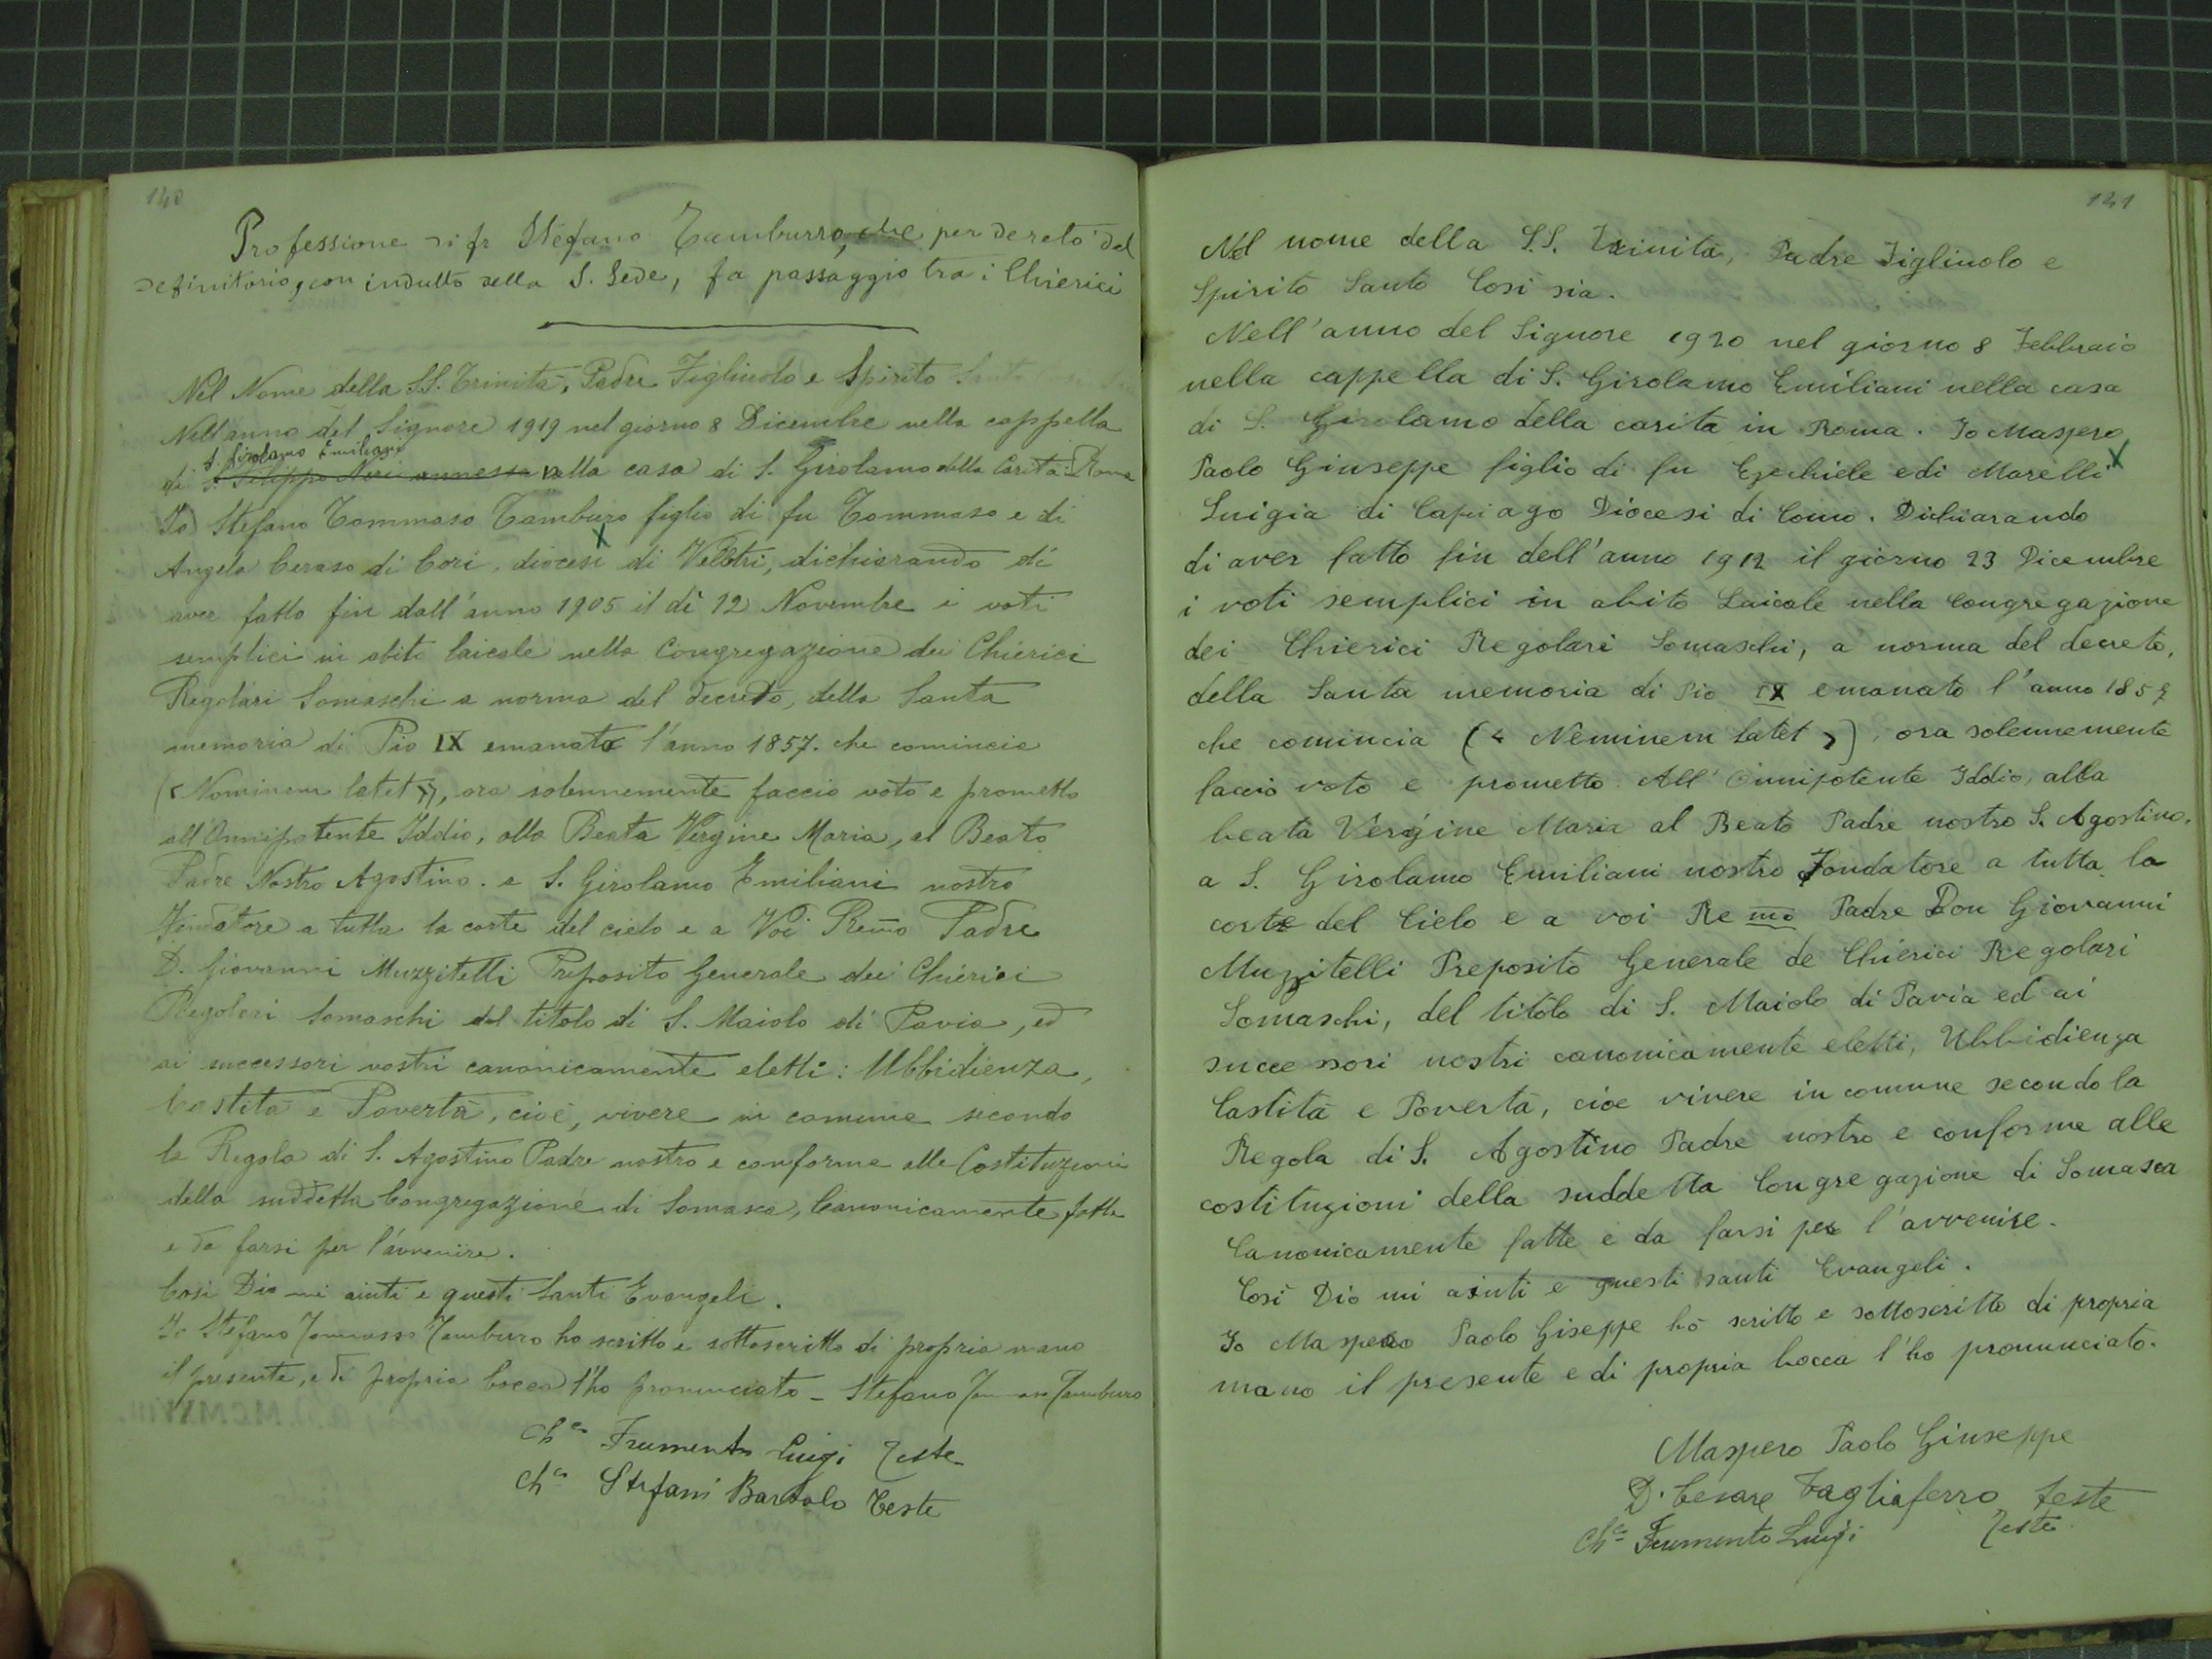 140
Professione di fr Stefano Tamburro, che per decreto del
definitorio, con indulto della S. Sede, fa passaggio tra i Chierici
Nel Nome della S.S. Trinità, Padre Figliuolo e Spirito Santo
Nell'anno del Signore 1919 nel giorno 8 Dicembre nella cappella
S. Girolamo Emiliani
di S. Filippo Neri annessa nella casa di S. Girolamo della Carità Roma
Io Stefano Tommaso Tamburo figlio di fu Tommaso e di
Angela Ceraso di Cori, diocesi di Velletri, dichiarando di
aver fatto fin dall'anno 1905 il dì 12 Novembre i voti
semplici in abito laicale nella Congregazione dei Chierici
Regolari Somaschi a norma del decreto, della Santa
memoria di Pio IX emanato l'anno 1857. che comincia
(«Nominem latet»), ora solennemente faccio voto e prometto
all'Onnipotente Iddio, alla Beata Vergine Maria, al Beato
Padre Nostro Agostino. a S. Girolamo Emiliani nostro
Fondatore a tutta la corte del cielo e a Voi Remo Padre
D. Giovanni Muzzitelli Preposito Generale dei Chierici
Regolari Somaschi del titolo di S. Maiolo di Pavia, ed
ai successori vostri canonicamente eletti: Ubbidienza,
Castità e Povertà, cioè, vivere in comune secondo
la Regola di S. Agostino Padre nostro e conforme alle Costituzioni
della suddetta Congregazione di Somasca, Canonicamente fatte
e da farsi per l'avvenire.
Così Dio mi aiuti e questi Santi Evangeli.
Io Stefano Tommaso Tamburro ho scritto e sottoscritto di propria mano
il presente, e di propria bocca l'ho pronunciato - Stefano Tommaso Tamburo
Chco Frumento Luigi Teste
Chco Stefani Bartolo Teste
141
Nel nome della S.S. Trinità, Padre Figliuolo e
Spirito Santo Così sia.
Nell'anno del Signore 1920 nel giorno 8 Febbraio
nella cappella di S. Girolamo Emiliani nella casa
di S. Girolamo della carità in Roma. Io Maspero
Paolo Giuseppe figlio di fu Ezechiele e di Marelli
Luigia di Capiago Diocesi di Como. Dichiarando
di aver fatto fin dell'anno 1912 il giorno 23 Dicembre
i voti semplici in abito Laicale nella Congregazione
dei Chierici Regolari Somaschi, a norma del decreto,
della Santa memoria di Pio IX emanato l'anno 1857
che comincia (« Neminem latet »), ora solennemente
faccio voto e prometto All'Onnipotente Iddio, alla
beata Vergine Maria al Beato Padre nostro S. Agostino,
a S. Girolamo Emiliani nostro Fondatore a tutta la
corte del Cielo e a voi Remo Padre Don Giovanni
Muzzitelli Preposito Generale de Chierici Regolari
Somaschi, del titolo di S. Maiolo di Pavia ed ai
successori nostri canonicamente eletti, Ubbidienza
Castità e Povertà, cioe vivere in comune secondo la
Regola di S. Agostino Padre nostro e conforme alle
costituzioni della suddetta Congregazione di Somasca
Canonicamente fatte e da farsi per l'avvenire.
Così Dio mi aiuti e questi santi Evangeli.
Io Maspero Paolo Giseppe ho scritto e sottoscritto di propria
mano il presente e di propria bocca l'ho pronunciato.
Maspero Paolo Giuseppe
D. Cesare Tagliaferro teste
Chco Frumento Luigi Teste